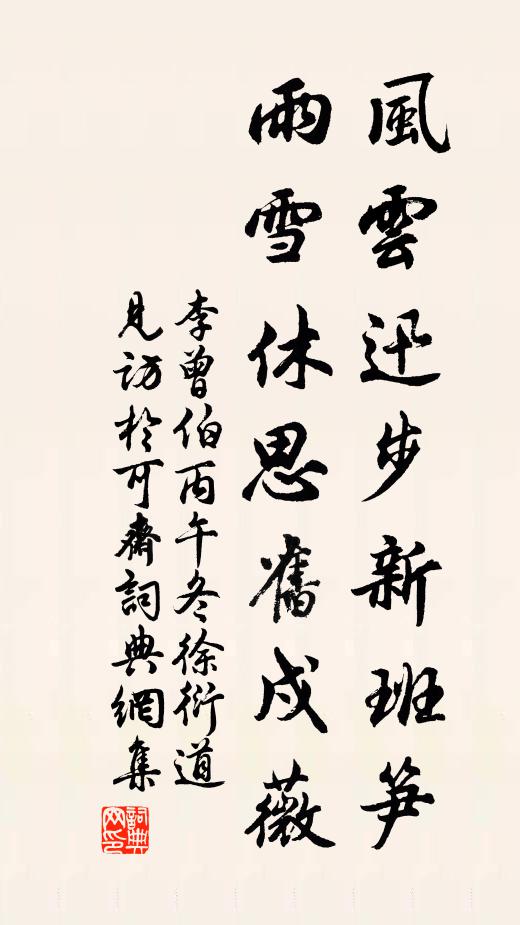 風雲迅步新班笋
雨雪休思舊戍薇
李曾伯丙午冬徐衍道
見訪於可齋詞典網集
詞典網印